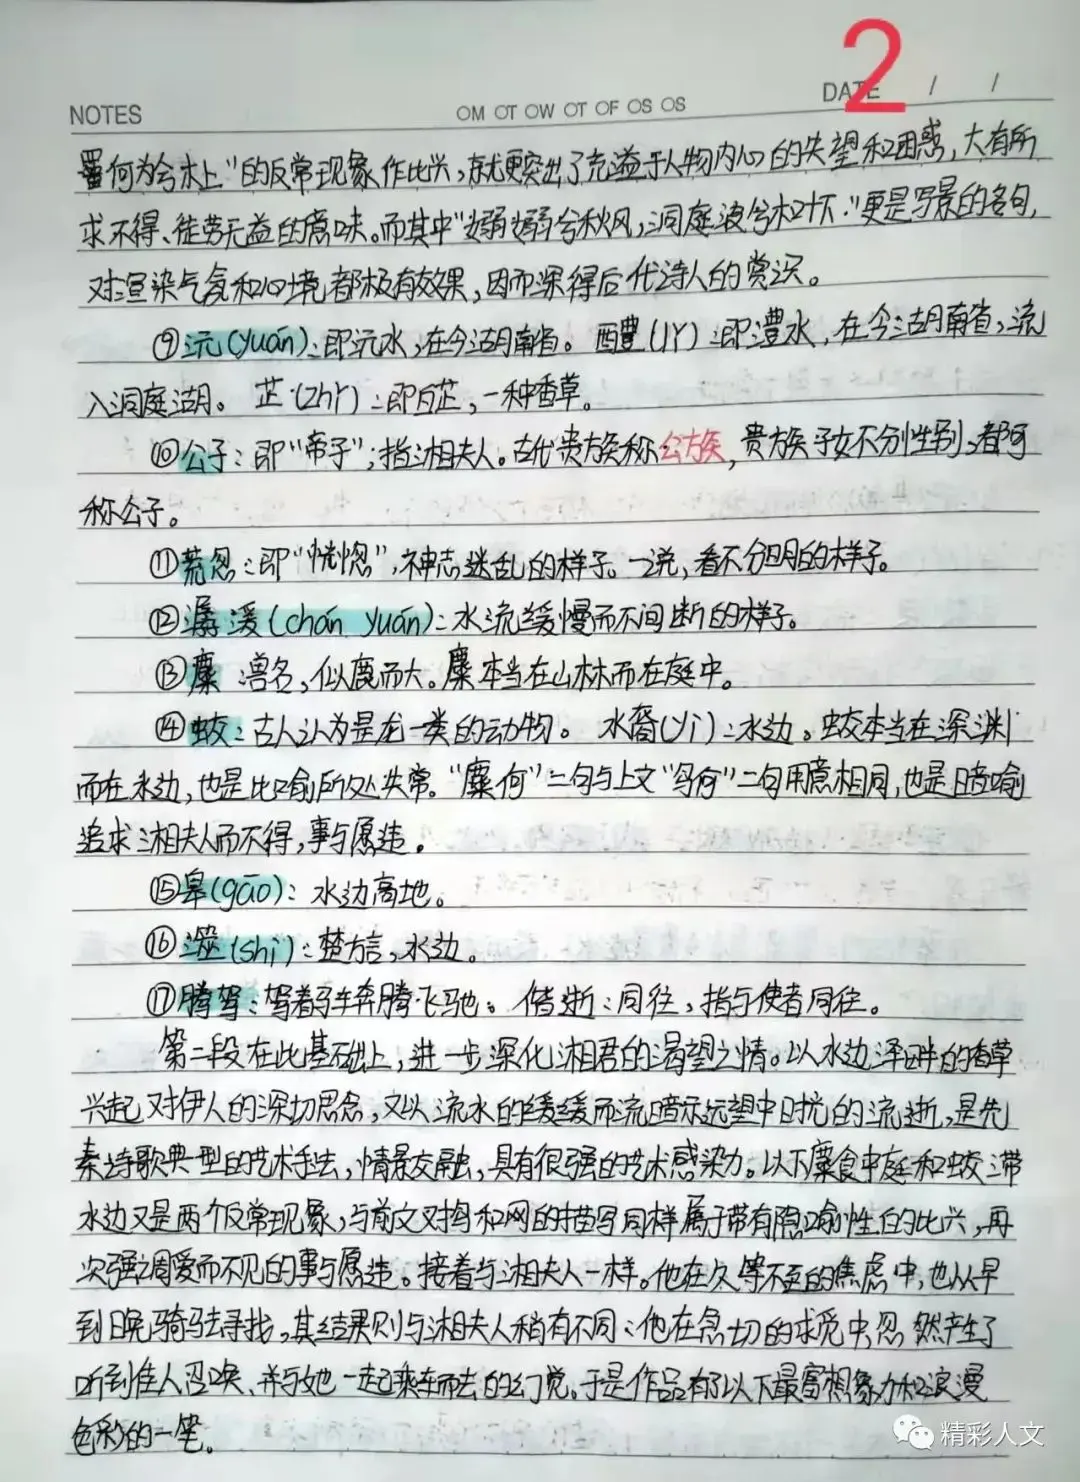 2
NOTES
OM OT OW OT OF OS OS
DATE / /
罾何为兮木上"的反常现象作比兴,就更突出了充溢于人物内心的失望和困惑,大有所
求不得、徒劳无益的意味。而其中"嫋嫋兮秋风,洞庭波兮木叶下."更是写景的名句,
对渲染气氛和心境都极有效果,因而深得后代诗人的赏识。
⑨沅(yuán):即沅水,在今湖南省。 醴(lǐ):即澧水,在今湖南省,流
入洞庭湖。 芷(zhǐ):即白芷,一种香草。
⑩公子:即"帝子",指湘夫人。古代贵族称公族,贵族子女不分性别,都可
称公子。
⑪荒忽:即"恍惚",神志迷乱的样子。一说,看不分明的样子。
⑫潺湲(chán yuán):水流缓慢而不间断的样子。
⑬麋:兽名,似鹿而大。麋本当在山林而在庭中。
⑭蛟:古人认为是龙一类的动物。 水裔(yì):水边。蛟本当在深渊
而在水边,也是比喻所处失常。"麋何"二句与上文"鸟何"二句用意相同,也是暗喻
追求湘夫人而不得,事与愿违。
⑮皋(gāo):水边高地。
⑯澨(shì):楚方言,水边。
⑰腾驾:驾着马车奔腾飞驰。 偕逝:同往,指与使者同往。
第二段在此基础上,进一步深化湘君的渴望之情。以水边泽畔的香草
兴起对伊人的深切思念,又以流水的缓缓而流暗示远望中时光的流逝,是先
秦诗歌典型的艺术手法,情景交融,具有很强的艺术感染力。以下麋食中庭和蛟滞
水边又是两个反常现象,与前文对鸟和网的描写同样属于带有隐喻性的比兴,再
次强调爱而不见的事与愿违。接着与湘夫人一样。他在久等不至的焦虑中,也从早
到晚骑马去寻找,其结果则与湘夫人稍有不同:他在急切的求觅中,忽然产生了
听到佳人召唤、并与她一起乘车而去的幻觉。于是作品有了以下最富想象力和浪漫
色彩的一笔。
精彩人文